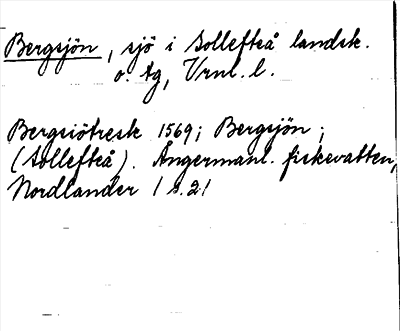 Bergsjön, sjö i Sollefteå landsk.
o. tg, Vrnl. l.
Bergsiötresk 1569; Bergsjön;
(Sollefteå). Ångermanl. fiskevatten,
Nordlander I s. 21